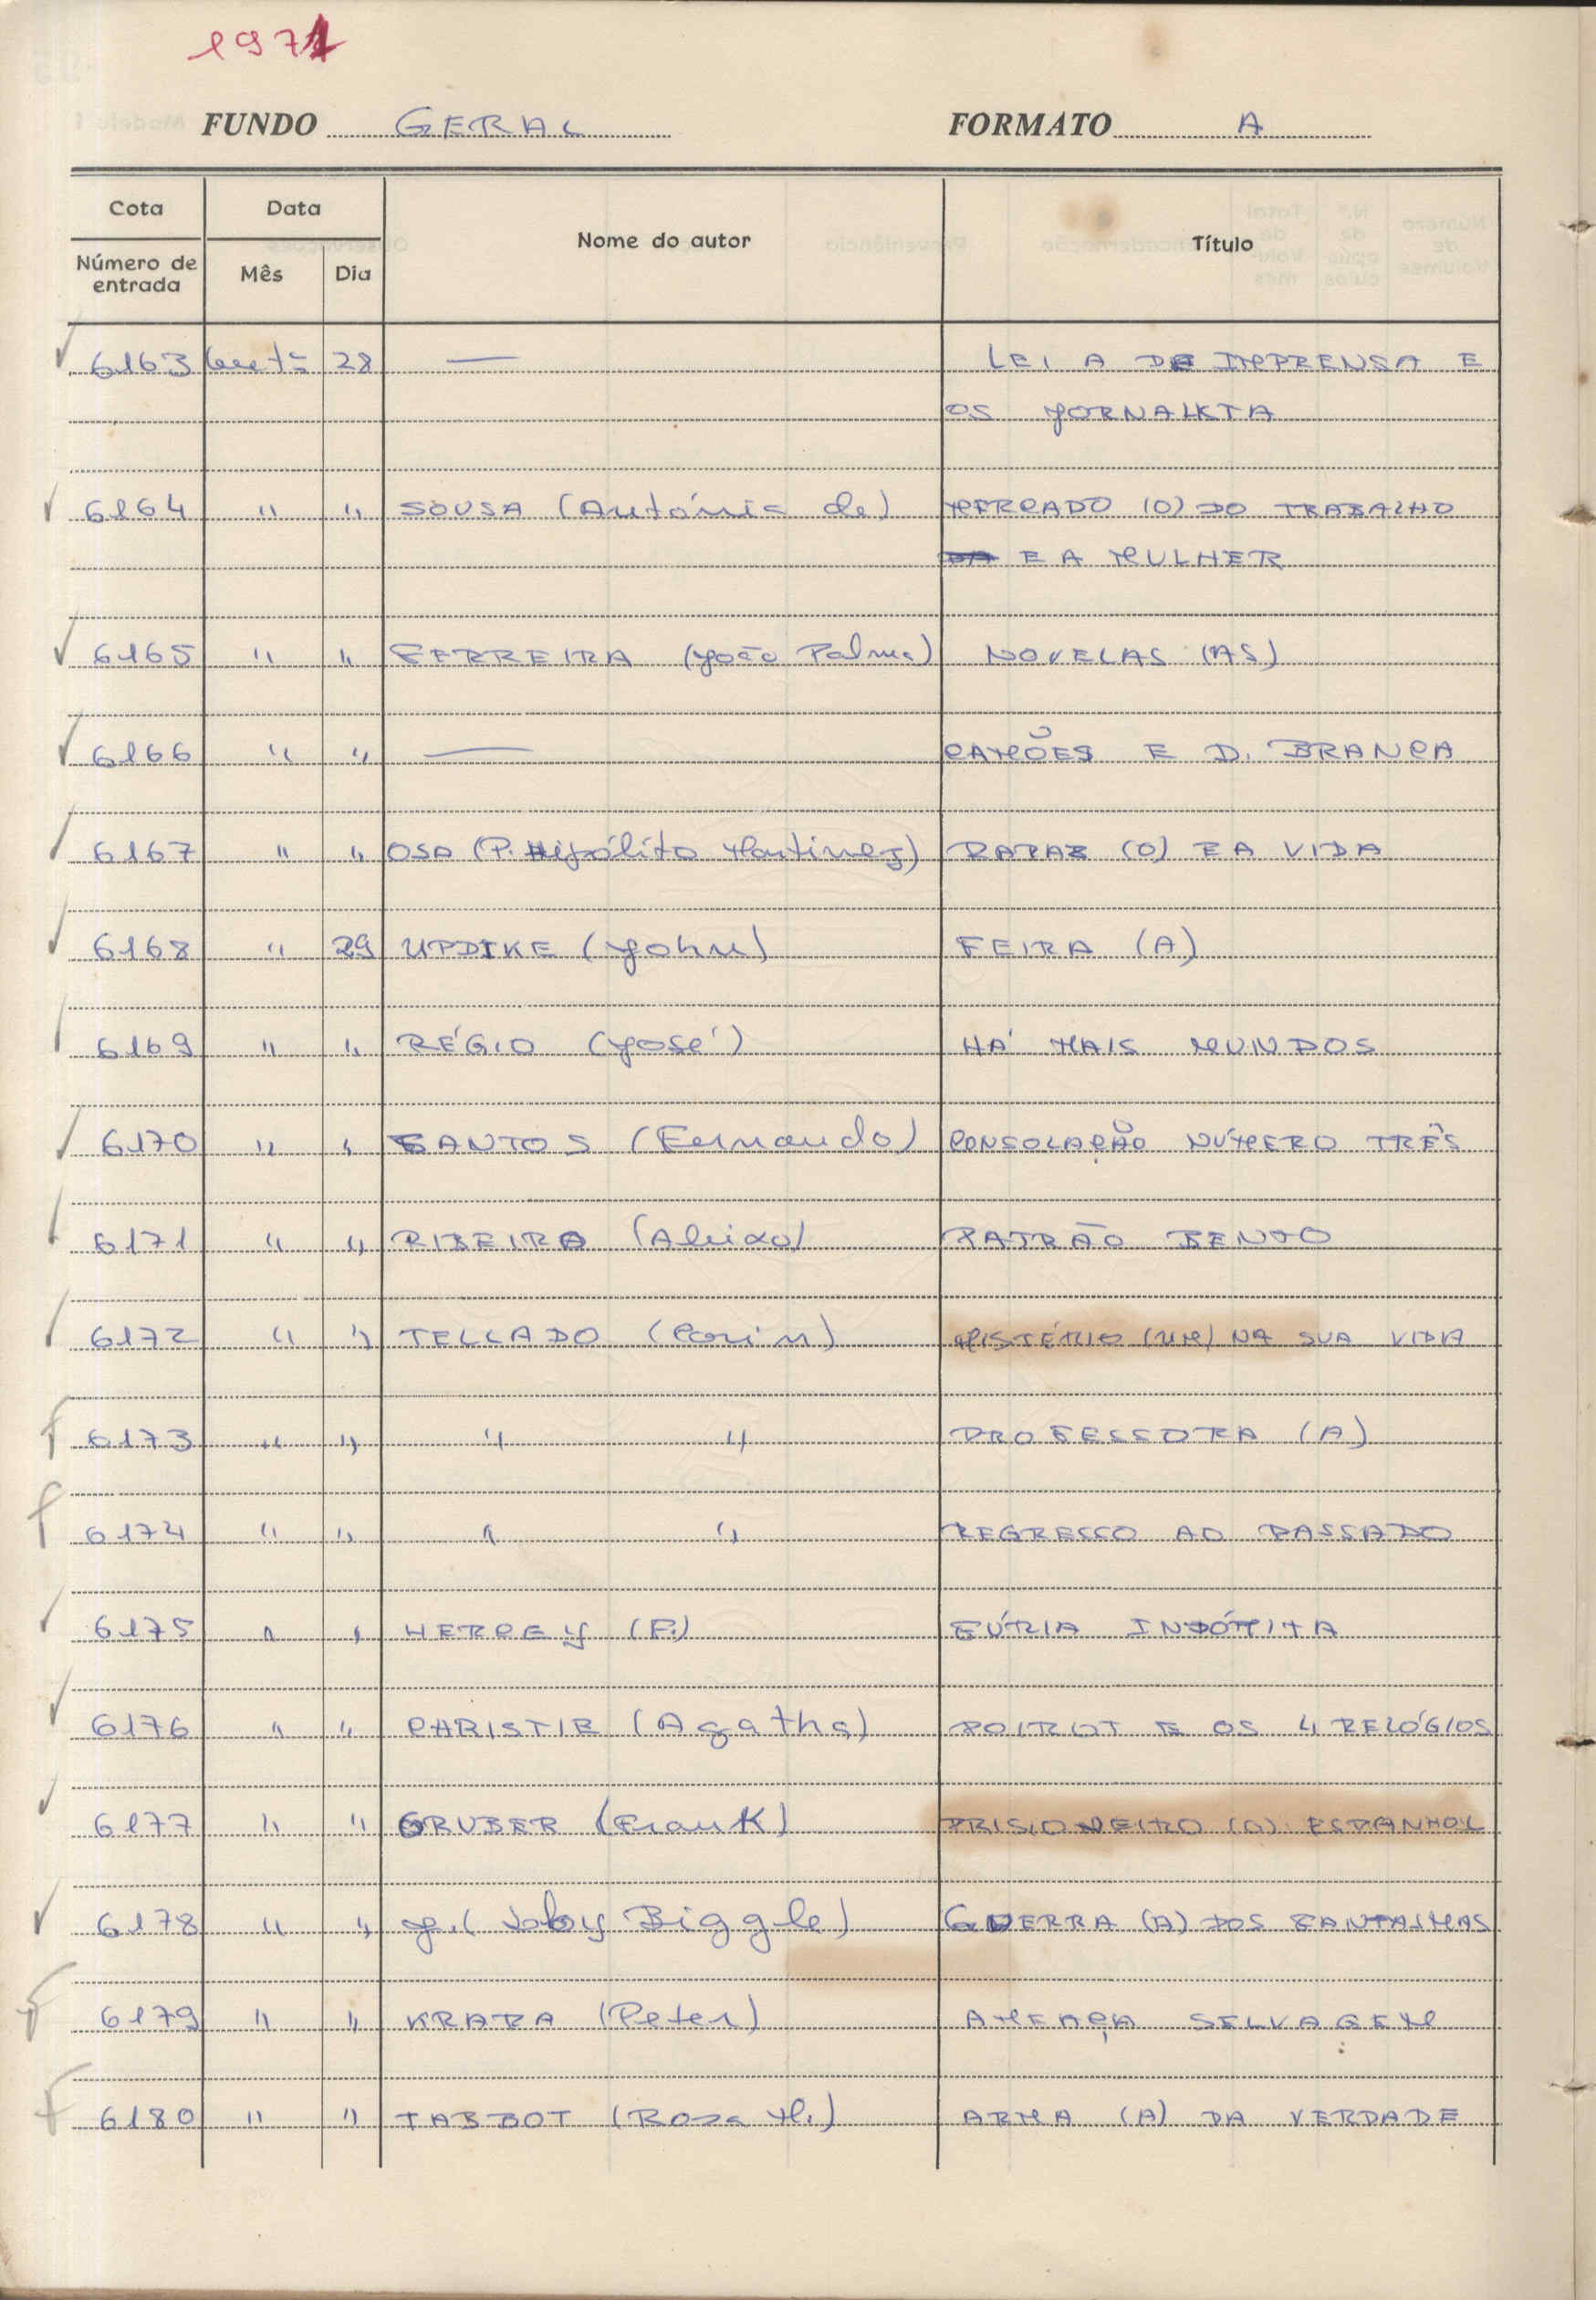 1971
FUNDO GERAL FORMATO A
Cota Data Nome do autor Título
Número de entrada Mês Dia
6163 28 — LEI A DE IMPRENSA E
OS JORNALISTA
6164 " " SOUSA (António de) MERCADO (O) DO TRABALHO
E A MULHER
6165 " " FERREIRA (João Palma) NOVELAS (AS)
6166 " " — CAMÕES E D. BRANCA
6167 " " OSA (P. Hipólito Martinez) RAPAZ (O) E A VIDA
6168 " 29 UPDIKE (John) FEIRA (A)
6169 " " RÉGIO (José) HÁ MAIS MUNDOS
6170 " " SANTOS (Fernando) CONSOLAÇÃO NÚMERO TRÊS
6171 " " RIBEIRO (Aleixo) PATRÃO BENTO
6172 " " TELLADO (Corin) MISTÉRIO (UM) NA SUA VIDA
6173 " " " " PROFESSORA (A)
6174 " " " " REGRESSO AO PASSADO
6175 " " (F.) FÚRIA INDÓMITA
6176 " " CHRISTIE (Agatha) POIROT E OS 4 RELÓGIOS
6177 " " GRUBER (Frank) PRISIONEIRO (O) ESPANHOL
6178 " " J. ( Biggle) GUERRA (A) DOS FANTASMAS
6179 " " (Peter) AMEAÇA SELVAGEM
6180 " " (Rosa M.) ARMA (A) DA VERDADE